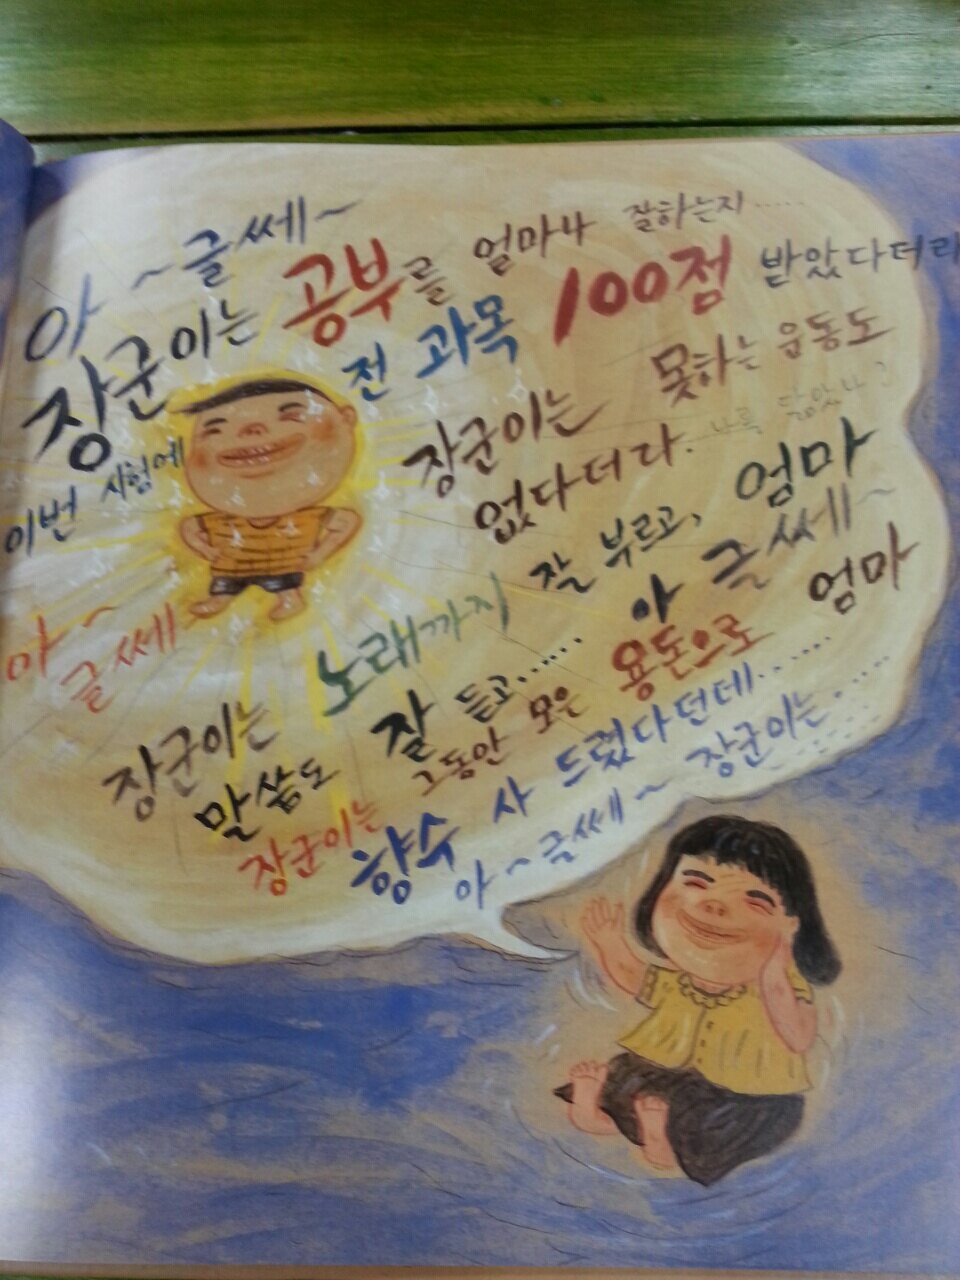 아~글쎄~
장군이는 공부를 얼마나 잘하는지.....
이번 시험에 전 과목 100점 받았다더라
장군이는 못하는 운동도
없다더라. 누굴 닮았나?
아~글쎄~
장군이는 노래까지 잘 부르고, 엄마
말씀도 잘 듣고...... 아 글쎄~
장군이는 그동안 모은 용돈으로 엄마
향수 사 드렸다던데......
아~글쎄~ 장군이는......